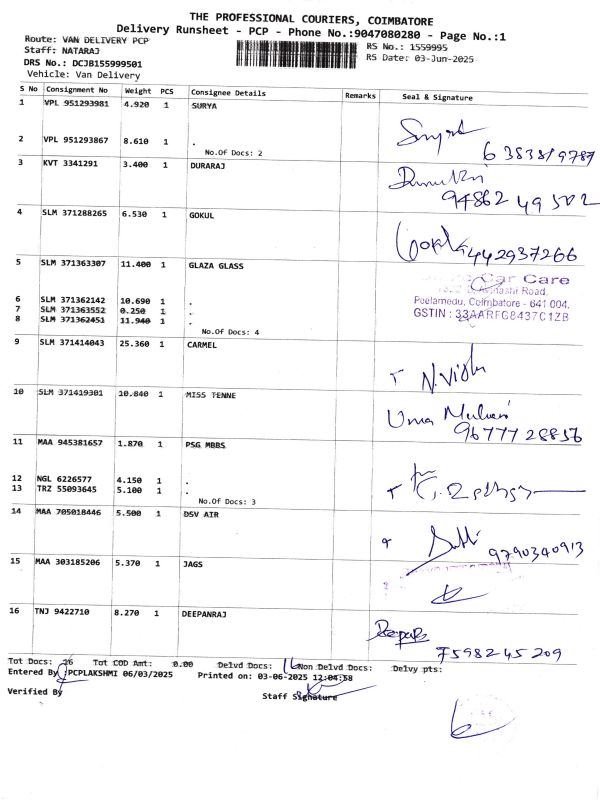 THE PROFESSIONAL COURIERS, COIMBATORE
Delivery Runsheet - PCP - Phone No.:9047080280 - Page No.:1
Route: VAN DELIVERY PCP
Staff: NATARAJ
DRS No.: DCJB155999501
Vehicle: Van Delivery
RS No.: 1559995
RS Date: 03-Jun-2025
S No Consignment No Weight PCS Consignee Details Remarks Seal & Signature
1 VPL 951293981 4.920 1 SURYA
2 VPL 951293867 8.610 1 .
No.Of Docs: 2
6383819787
3 KVT 3341291 3.400 1 DURARAJ
94862 49502
4 SLM 371288265 6.530 1 GOKUL
5 SLM 371363307 11.400 1 GLAZA GLASS
Car Care
Avinashi Road,
Peelamedu, Coimbatore - 641 004.
GSTIN : 33AARFG8437C1ZB
6 SLM 371362142 10.690 1 .
7 SLM 371363552 0.250 1 .
8 SLM 371362451 11.940 1 .
No.Of Docs: 4
9 SLM 371414043 25.360 1 CARMEL
10 SLM 371419301 10.840 1 MISS TENNE
Uma
96777 28856
11 MAA 945381657 1.870 1 PSG MBBS
12 NGL 6226577 4.150 1 .
13 TRZ 55093645 5.100 1 .
No.Of Docs: 3
14 MAA 705018446 5.500 1 DSV AIR
9790340913
15 MAA 303185206 5.370 1 JAGS
16 TNJ 9422710 8.270 1 DEEPANRAJ
7598245209
Tot Docs: 16 Tot COD Amt: 0.00 Delvd Docs: 16 Non Delvd Docs: Delvy pts:
Entered By :PCPLAKSHMI 06/03/2025 Printed on: 03-06-2025 12:04:58
Verified By Staff Signature